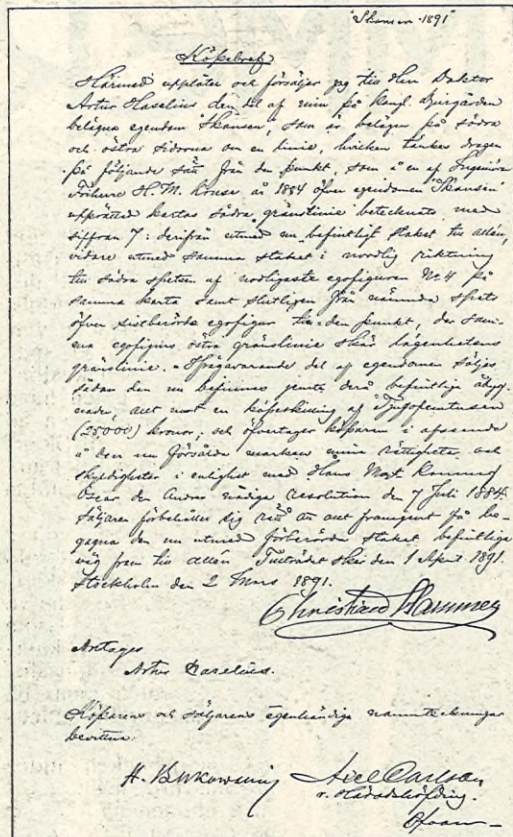 "Skansen 1891"
Köpebref
Härmed upplåter och försäljer jag till Herr Doktor
Artur Hazelius den del af min på Kongl. Djurgården
belägna egendom "Skansen", som är belägen på södra
och östra sidorna om en linie, hvilken tänkes dragen
på följande sätt från den punkt, som å en af Ingeniören
Friherre H. M. år 1884 öfver egendomen "Skansen"
upprättad kartas södra gränslinie betecknats med
siffran 7: derifrån utmed nu befintligt staket till allén,
vidare utmed samma staket i nordlig riktning
till södra spetsen af nordligaste egofiguren No 4 på
samma karta samt slutligen från nämnda spets
öfver sistberörde egofigur till den punkt, der sam-
ma egofigurs östra gränslinie skär lägenhetens
gränslinie. Ifrågavarande del af egendomen säljes
sådan den nu befinnes jemte derå befintlig åbygg-
nader, allt mot en köpeskilling af Tjugofemtusen
(25,000) kronor; och öfvertager köparen i afseende
å den nu försålda marken mina rättigheter och
skyldigheter i enlighet med Hans Majt Konung
Oscar den Andres nådiga resolution den 7 Juli 1884.
Säljaren förbehåller sig rätt att allt framgent få be-
gagna den nu utmed förberörda staket befintliga
väg fram till allén. Tillträdet sker den 1 April 1891.
Stockholm den 2 Mars 1891.
Christian Hammer
Antages
Artur Hazelius.
Köparens och säljarens egenhändiga namnteckningar
bevittna:
H. Bukowski Axel Carlson
v. Häradshöfding.